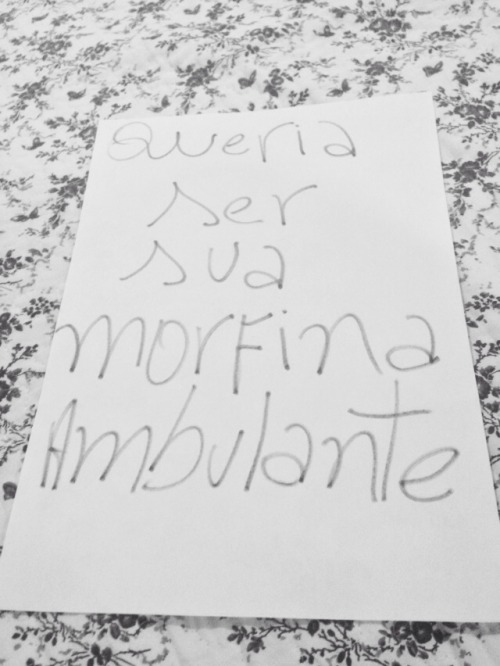 Queria
ser
sua
morfina
Ambulante